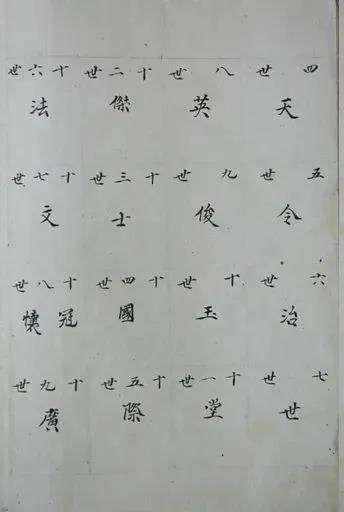 四世
天
五世
令
六世
治
七世
世
八世
英
九世
俊
十世
玉
十一世
堂
十二世
傑
十三世
士
十四世
國
十五世
際
十六世
法
十七世
文
十八世
冠懷
十九世
廣